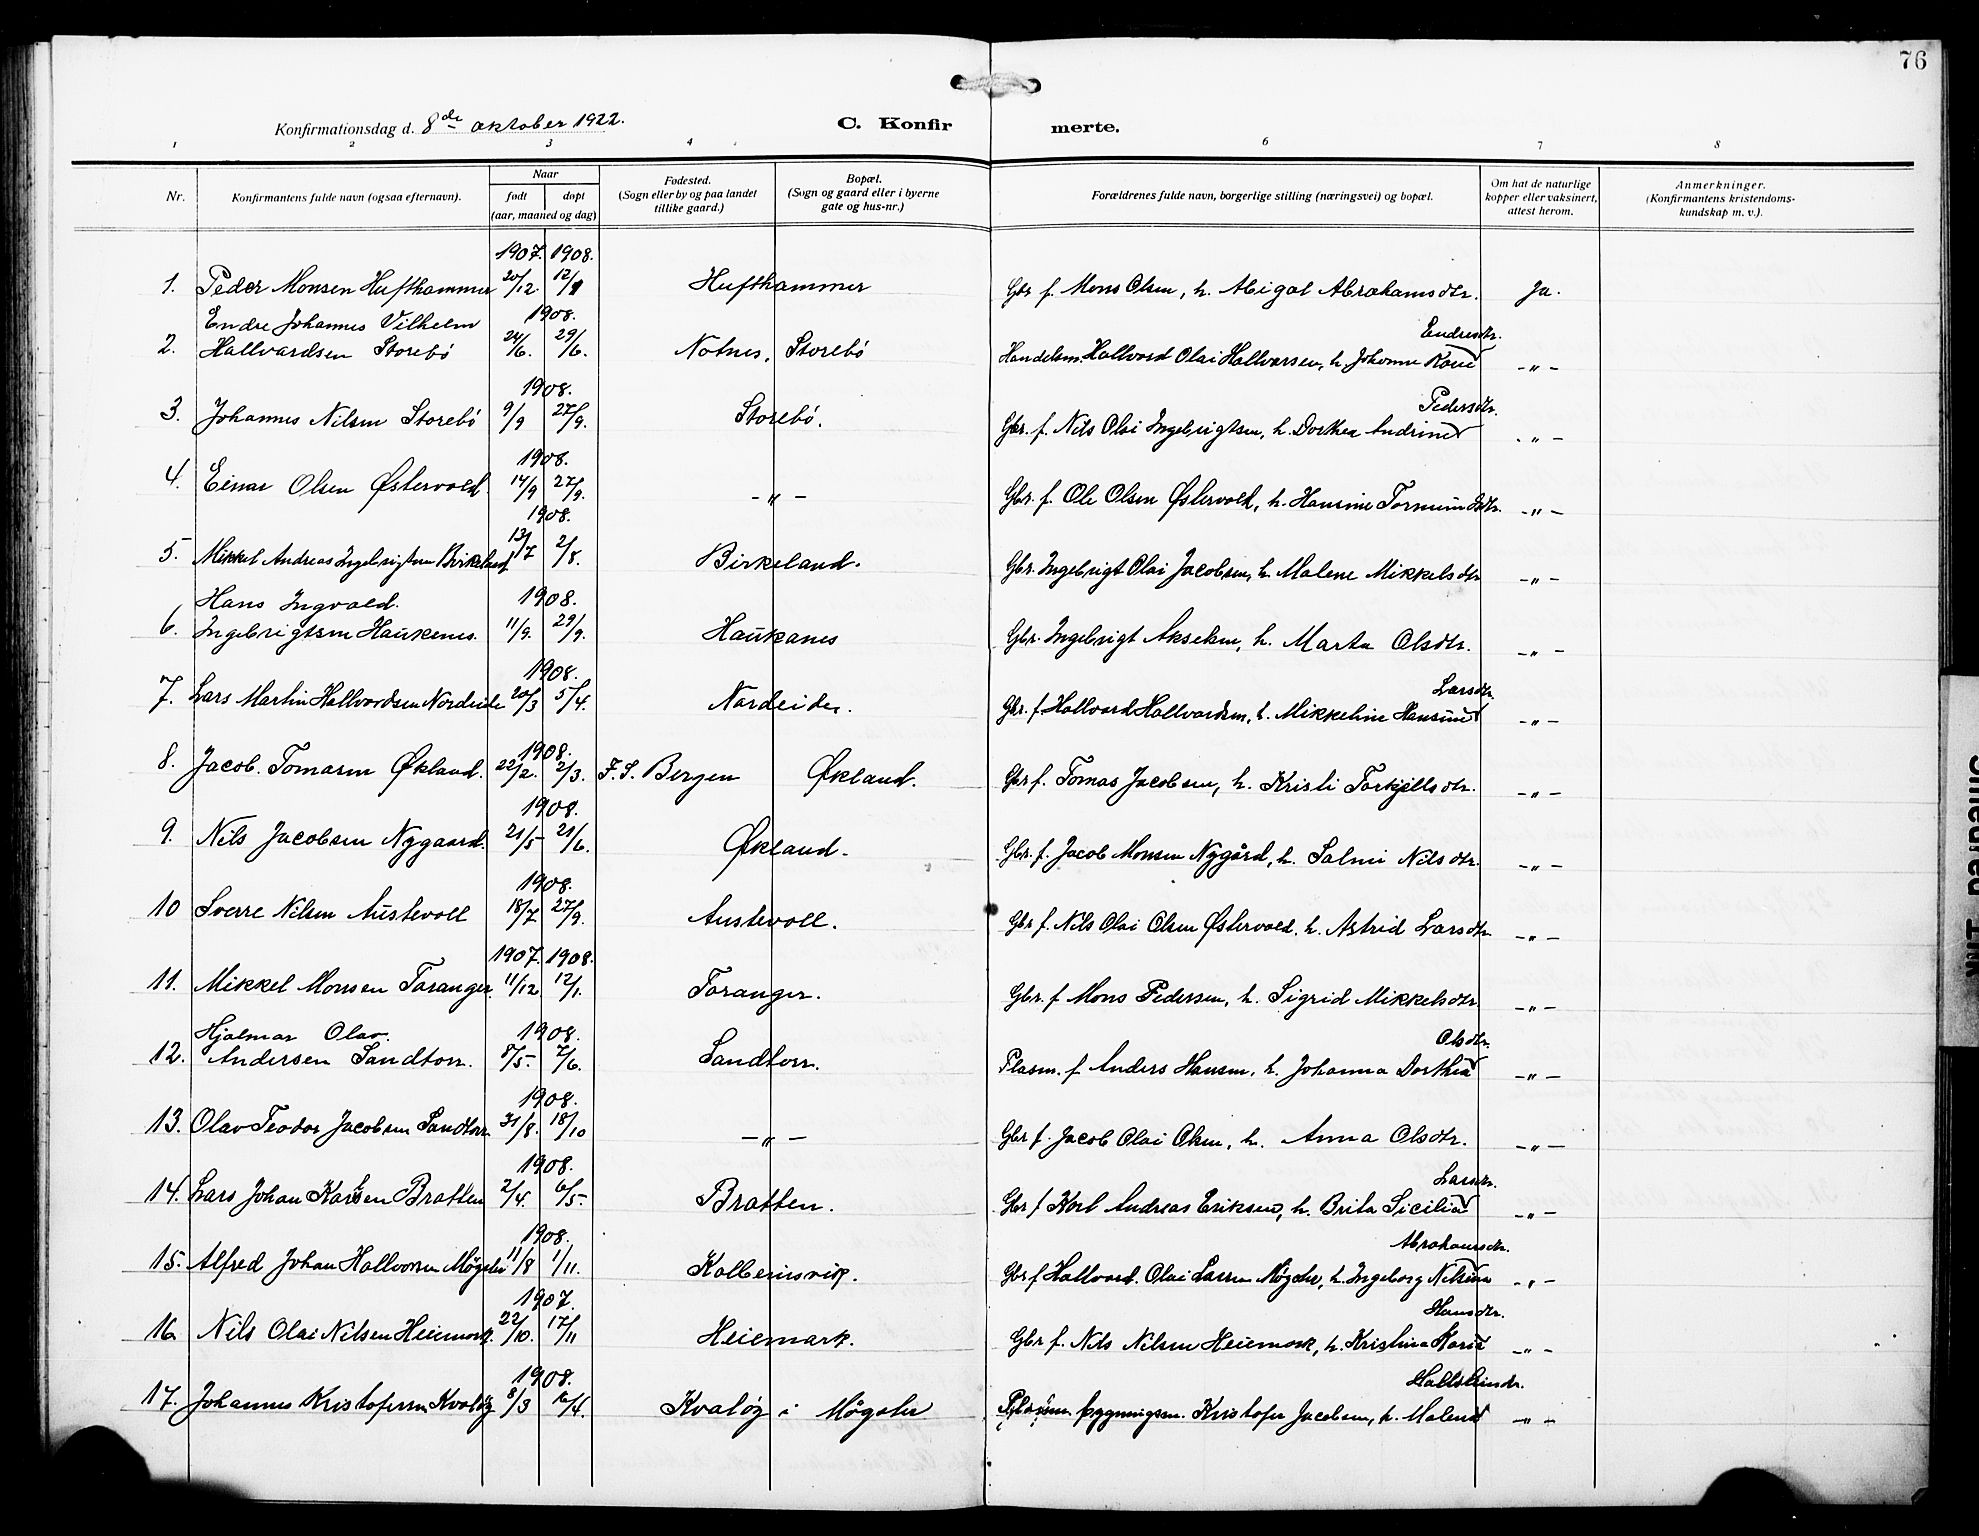 76
Konfirmationsdag d. 8de oktober 1922.
C. Konfir merte.
1 2 3 4 6 7 8
Nr.
Konfirmantens fulde navn (ogsaa efternavn).
Naar
født døpt
(aar, maaned og dag)
Fødested.
(Sogn eller by og paa landet
tillike gaard.)
Bopæl.
(Sogn og gaard eller i byerne
gate og hus-nr.)
Forældrenes fulde navn, borgerlige stilling (næringsvei) og bopæl.
Om hat de naturlige
kopper eller vaksinert,
attest herom.
Anmerkninger.
(Konfirmantens kristendoms-
kundskap m. v.).
1907. 1908.
1. Peder Monsen Hufthammer 20/12. 12/1 Hufthammer Gbr f. Mons Olsen, h. Abigal Abrahamsdtr. Ja.
Endre Johannes Vilhelm 1908. Endresdtr.
2. Hallvardsen Storebö 24/6. 29/6. Notnes, Storebö Handelsm. Hallvard Olai Hallvarsen, h. Johanne Karie - " -
1908. Pedersdtr.
3. Johannes Nilsen Storebö 9/9 27/9. Storebö. Gbr. f. Nils Olai Ingebrigtsen, h. Dorthea Andrine - " -
1908.
4. Einar Olsen Østervold 14/9 27/9. - " - Gbr. f. Ole Olsen Østervold, h. Hansine Tormundsdtr. - " -
1908.
5. Mikkel Andreas Ingebrigtsen Birkeland 13/7 2/8. Birkeland. Gbr. Ingebrigt Olai Jacobsen, h. Malene Mikkelsdtr - " -
Hans Ingvald. 1908.
6. Ingebrigtsen Haukenes. 11/9. 29/9. Haukanes Gbr. Ingebrigt Akselsen, h. Marta Olsdtr. - " -
1908. Larsdtr.
7. Lars Martin Hallvardsen Nordeide 20/3 5/4. Nordeide. Gbr. f Hallvard Hallvardsen, h. Mikkeline Hansine - " -
1908.
8. Jacob. Tomassen Økland. 22/2. 2/3. F. S. Bergen Økland. Gbr f. Tomas Jacobsen, h. Kristi Torkjellsdtr. - " -
1908.
9. Nils Jacobsen Nygaard. 21/5 21/6. Økland. Gbr. f. Jacob Monsen Nygård, h. Salmi Nilsdtr. - " -
1908.
10 Sverre Nilsen Austevoll 18/7 27/9. Austevoll. Gbr f. Nils Olai Olsen Østervold. h. Astrid Larsdtr. - " -
1907. 1908.
11. Mikkel Monsen Toranger. 11/12. 12/1. Toranger. Gbr. f Mons Pedersen, h. Sigrid Mikkelsdtr - " -
Hjalmar Olav. 1908. Olsdtr.
12. Andersen Sandtorr. 8/5- 7/6. Sandtorr. Plasm. f Anders Hansen, h. Johanna Dorthea - " -
1908.
13. Olav Teodor Jacobsen Sandtorr 31/8. 18/10 - " - Gbr f. Jacob Olai Olsen, h. Anna Olsdtr. - " -
1908. Larsdtr.
14. Lars Johan Karlsen Bratten 2/4. 6/5- Bratten. Gbr f Karl Andreas Eriksen, h. Brita Sicilia - " -
1908. Abrahamsdtr.
15. Alfred Johan Hallvorsen Møgster 11/8 1/11. Kolbeinsvik. Gbr f Hallvard. Olai Larsen Møgster, h. Ingeborg Nilsina - " -
1907. Hansdtr.
16 Nils Olai Nilsen Heiemark. 22/10. 17/11 Heiemark. Gbr f. Nils Nilsen Heiemark, h. Kristina Karia - " -
1908. Hallsteindr.
17. Johannes Kristofersen Kvaløy 8/3 /4. Kvaløy i Møgster bygningsm. Kristofer Jacobsen, h. Malena - " -